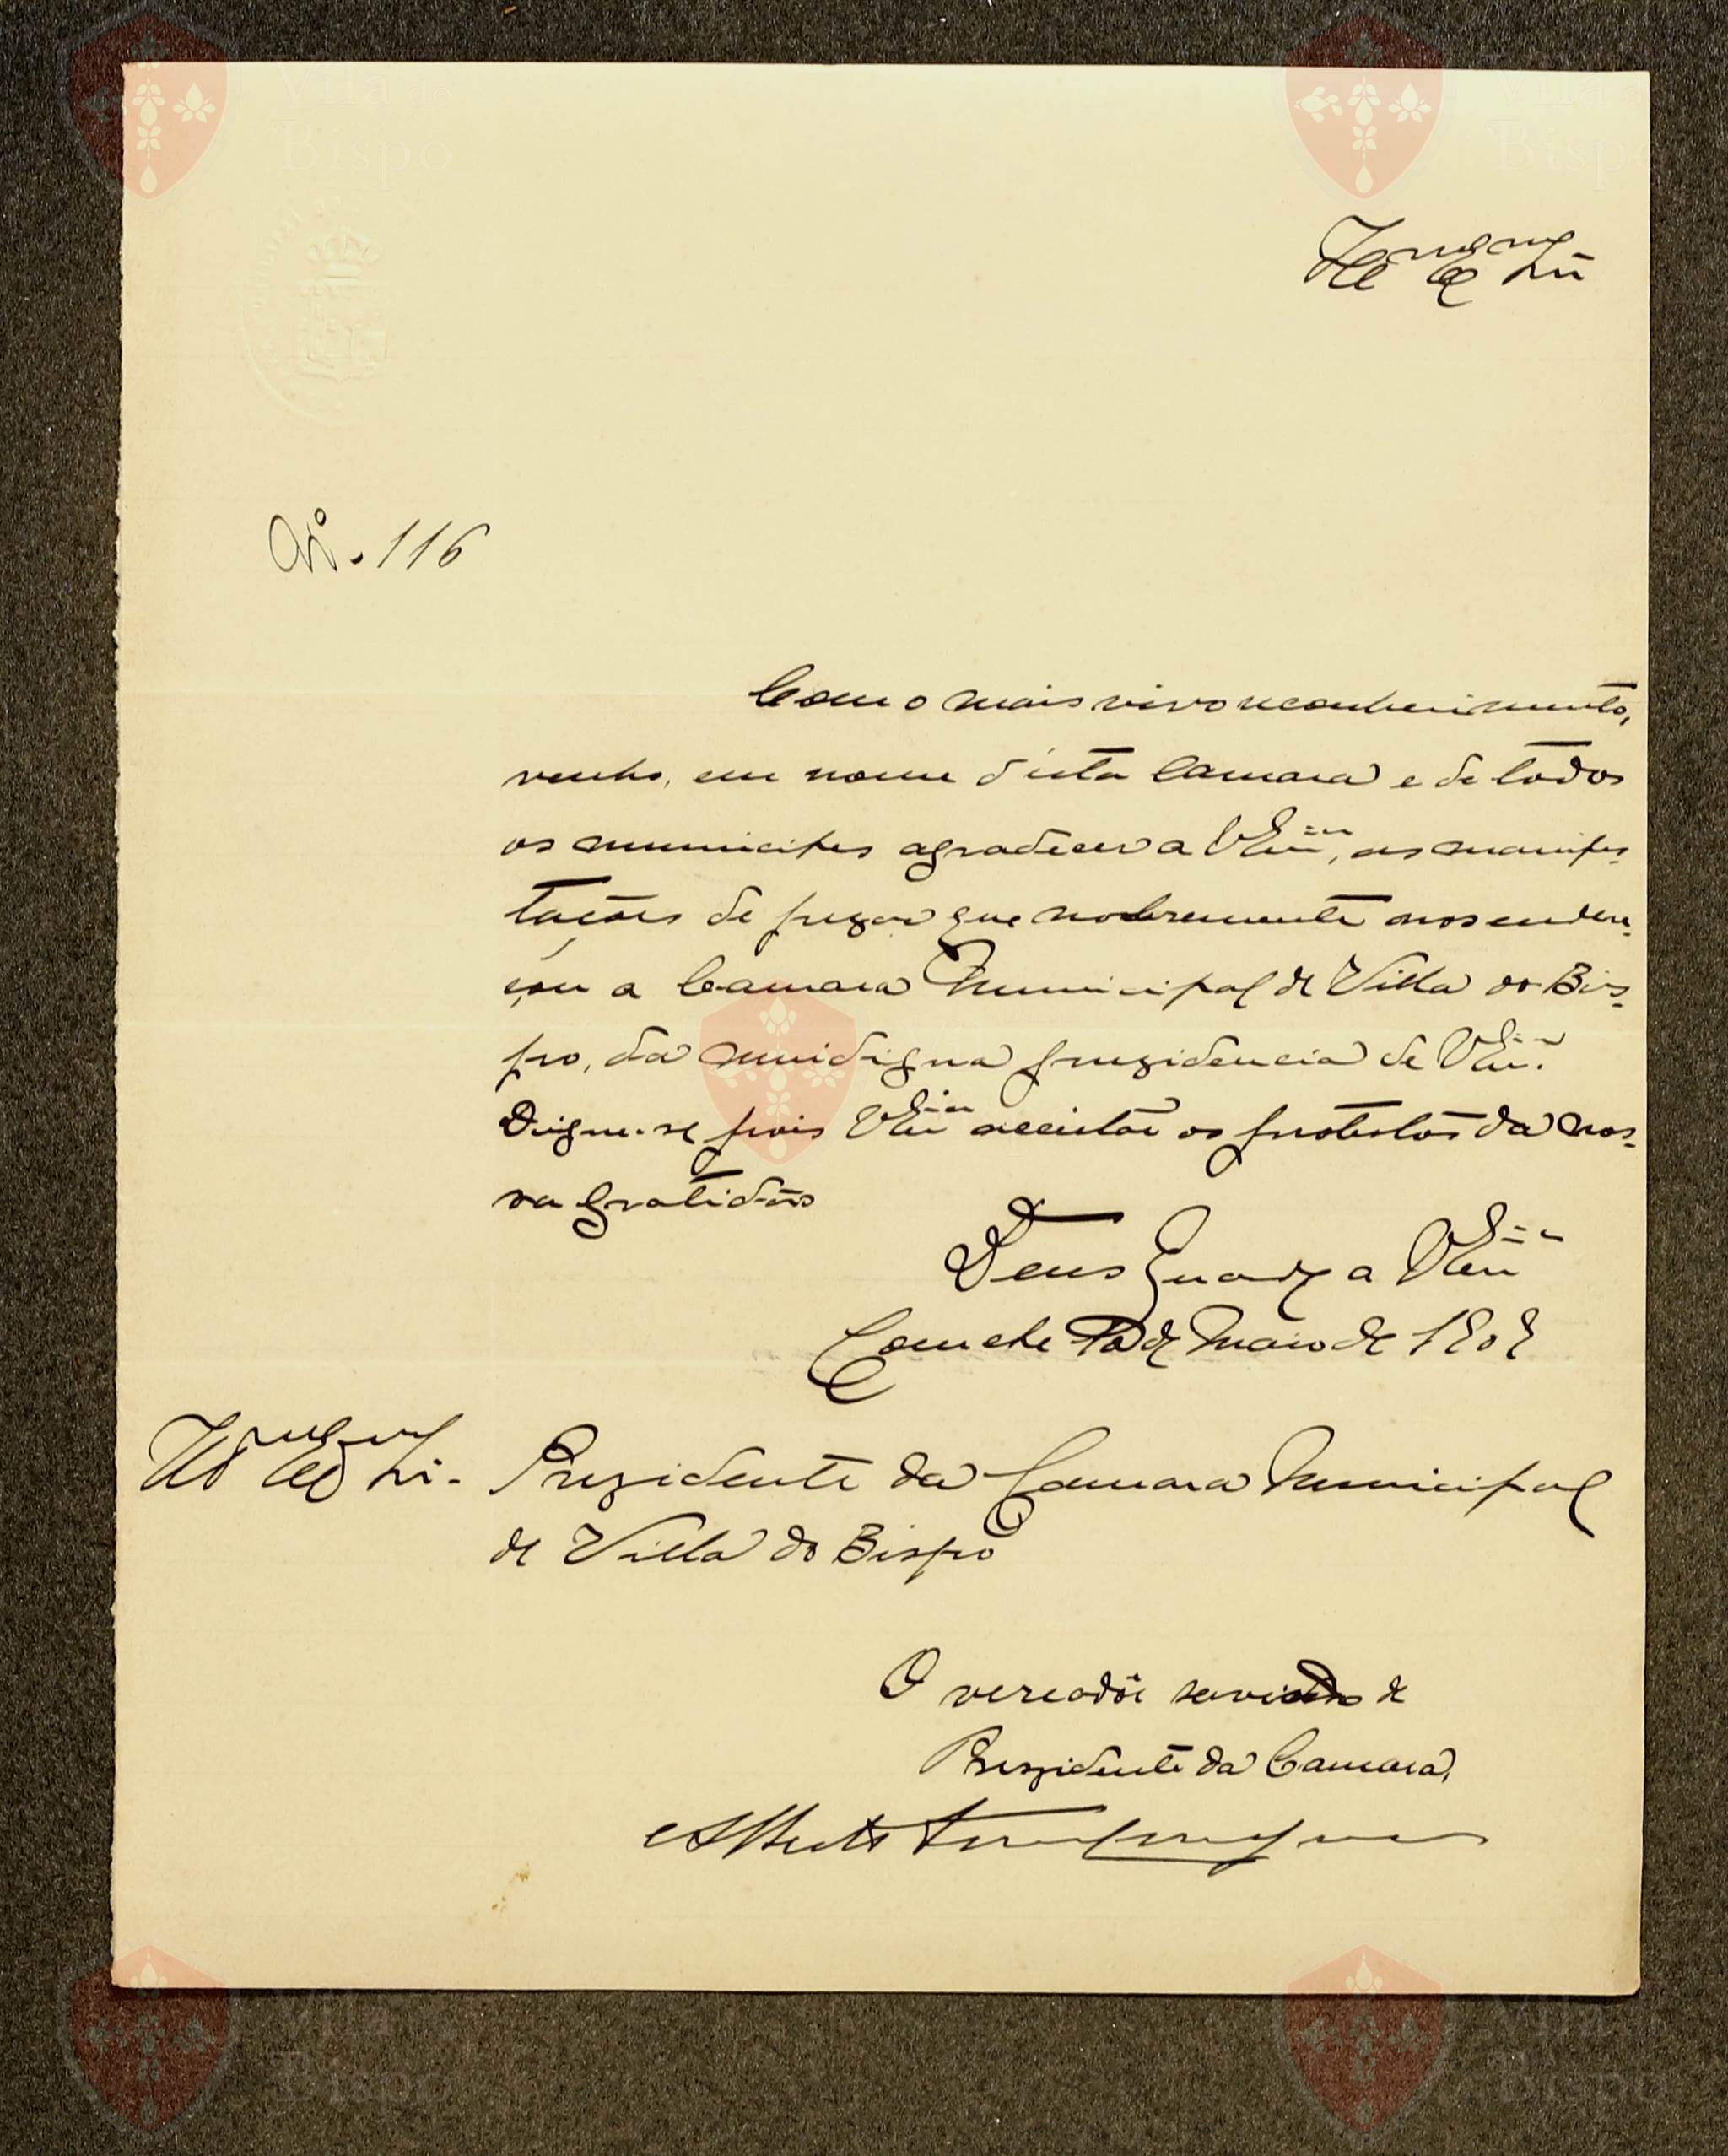 Illmo Exmo Snr
Nº. 116
Com o mais vivo reconhecimento,
venho, em nome d'esta Camara e de todos
os municipes agradecer a VExcia, as manifes-
tações de pezar que nobremente nos endere-
çou a Camara Municipal de Villa do Bis-
po, da mui digna prezidencia de VExcia.
Digne-se pois VExcia acceitar os protestos da nos-
sa gratidão
Deus Guarde a VExcia
de Maio de 1909
Illmo Exmo Snr. Prezidente da Camara Municipal
de Villa do Bispo
O vereador servindo de
Prezidente da Camara,
Alberto
Vila do
Bispo